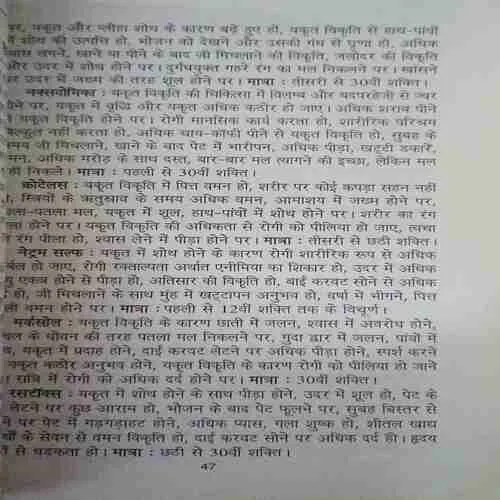 पर, यकृत और प्लीहा शोथ के कारण बढ़े हुए हो, यकृत विकृति से हाथ-पांवों
में शोथ की उत्पत्ति हो, भोजन को देखने और उसकी गंध से घृणा हो, अधिक
प्यास लगने, खाने या पीने के बाद जी मिचलाने की विकृति, जलोदर की विकृति
और उदर में शोथ होने पर। दुर्गंधयुक्त गहरे रंग का मल निकलने पर। खांसने
पर उदर में जख्म की तरह शूल होने पर। मात्रा : तीसरी से 30वीं शक्ति।
नक्सवोमिका : यकृत विकृति की चिकित्सा में विलम्ब और बदपरहेजी से ज्वर
होने पर, यकृत में वृद्धि और यकृत अधिक कठोर हो जाए। अधिक शराब पीने
यकृत विकृति होने पर। रोगी मानसिक कार्य करता हो, शारीरिक परिश्रम
बिल्कुल नहीं करता हो, अधिक चाय-कॉफी पीने से यकृत विकृति हो, सुबह के
समय जी मिचलाने, खाने के बाद पेट में भारीपन, अधिक पीड़ा, खट्टी डकारें,
वमन, अधिक मरोड़ के साथ दस्त, बार-बार मल त्यागने की इच्छा, लेकिन मल
नहीं निकले। मात्रा : पहली से 30वीं शक्ति।
क्रोटेलस : यकृत विकृति में पित्त वमन हो, शरीर पर कोई कपड़ा सहन नहीं
हो, स्त्रियों के ऋतुस्राव के समय अधिक वमन, आमाशय में जख्म होने पर,
काला-पतला मल, यकृत में शूल, हाथ-पांवों में शोथ होने पर। शरीर का रंग
पीला होने पर। यकृत विकृति की अधिकता से रोगी को पीलिया हो जाए, त्वचा
का रंग पीला हो, श्वास लेने में पीड़ा होने पर। मात्रा : तीसरी से छठी शक्ति।
नेट्रम सल्फ : यकृत में शोथ होने के कारण रोगी शारीरिक रूप से अधिक
निर्बल हो जाए, रोगी रक्ताल्पता अर्थात एनीमिया का शिकार हो, उदर में अधिक
वायु एकत्र होने से पीड़ा हो, अतिसार की विकृति हो, बाईं करवट सोने से अधिक
दर्द हो, जी मिचलाने के साथ मुंह में खट्टापन अनुभव हो, वर्षा में भीगने, पित्त
की वमन होने पर। मात्रा : पहली से 12वीं शक्ति तक के विचूर्ण।
मर्कसोल : यकृत विकृति के कारण छाती में जलन, श्वास में अवरोध होने,
चावल के धोवन की तरह पतला मल निकलने पर, गुदा द्वार में जलन, पांवों में
यकृत में प्रदाह होने, दाईं करवट लेटने पर अधिक पीड़ा होने, स्पर्श करने
यकृत कठोर अनुभव होने, यकृत विकृति के कारण रोगी को पीलिया हो जाने
रात्रि में रोगी को अधिक दर्द होने पर। मात्रा : 30वीं शक्ति।
रसटॉक्स : यकृत में शोथ होने के साथ पीड़ा होने, उदर में शूल हो, पेट के
लेटने पर कुछ आराम हो, भोजन के बाद पेट फूलने पर, सुबह बिस्तर से
पर पेट में गड़गड़ाहट होने, अधिक प्यास, गला शुष्क हो, शीतल खाद्य
के सेवन से वमन विकृति हो, दाईं करवट सोने पर अधिक दर्द हो। हृदय
से धड़कता हो। मात्रा : छठी से 30वीं शक्ति।
47